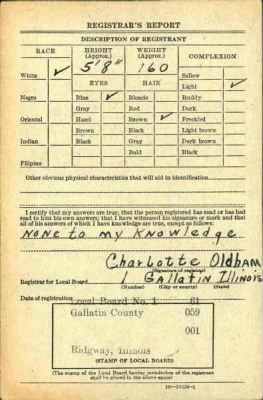 REGISTRAR'S REPORT
DESCRIPTION OF REGISTRANT
RACE HEIGHT (Approx.) WEIGHT (Approx.) COMPLEXION
5'8" 160
White ✓ Sallow
EYES HAIR Light ✓
Negro Blue ✓ Blonde Ruddy
Gray Red Dark
Oriental Hazel Brown ✓ Freckled
Brown Black Light brown
Indian Black Gray Dark brown
Bald Black
Filipino
Other obvious physical characteristics that will aid in identification
I certify that my answers are true; that the person registered has read or has had
read to him his own answers; that I have witnessed his signature or mark and that
all of his answers of which I have knowledge are true, except as follows:
None to my Knowledge
Charlotte Oldham
(Signature of registrar)
Registrar for Local Board 1 Gallatin Illinois
(Number) (City or county) (State)
Date of registration
Local Board No. 1 61
Gallatin County 059
001
Ridgway, Illinois
(STAMP OF LOCAL BOARD)
(The stamp of the Local Board having jurisdiction of the registrant
shall be placed in the above space)